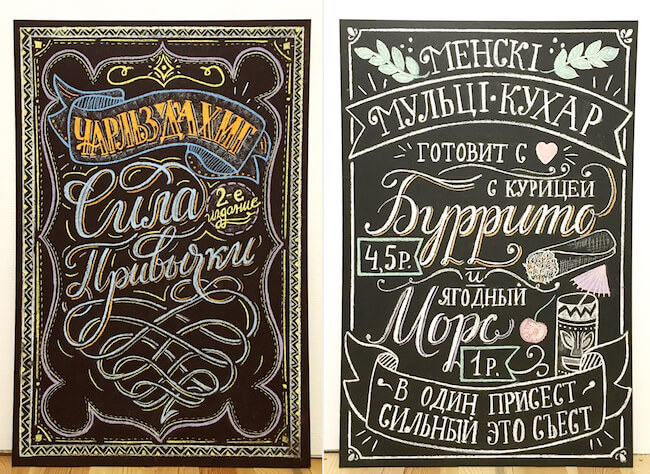 ЧАРЛЗ ДАХИГ
Сила
2-е
издание
Привычки
МЕНСКІ
МУЛЬЦІ·КУХАР
ГОТОВИТ С
С КУРИЦЕЙ
Буррито
4,5Р.
и
ЯГОДНЫЙ
Морс
1Р.
В ОДИН ПРИСЕСТ
СИЛЬНЫЙ ЭТО СЪЕСТ